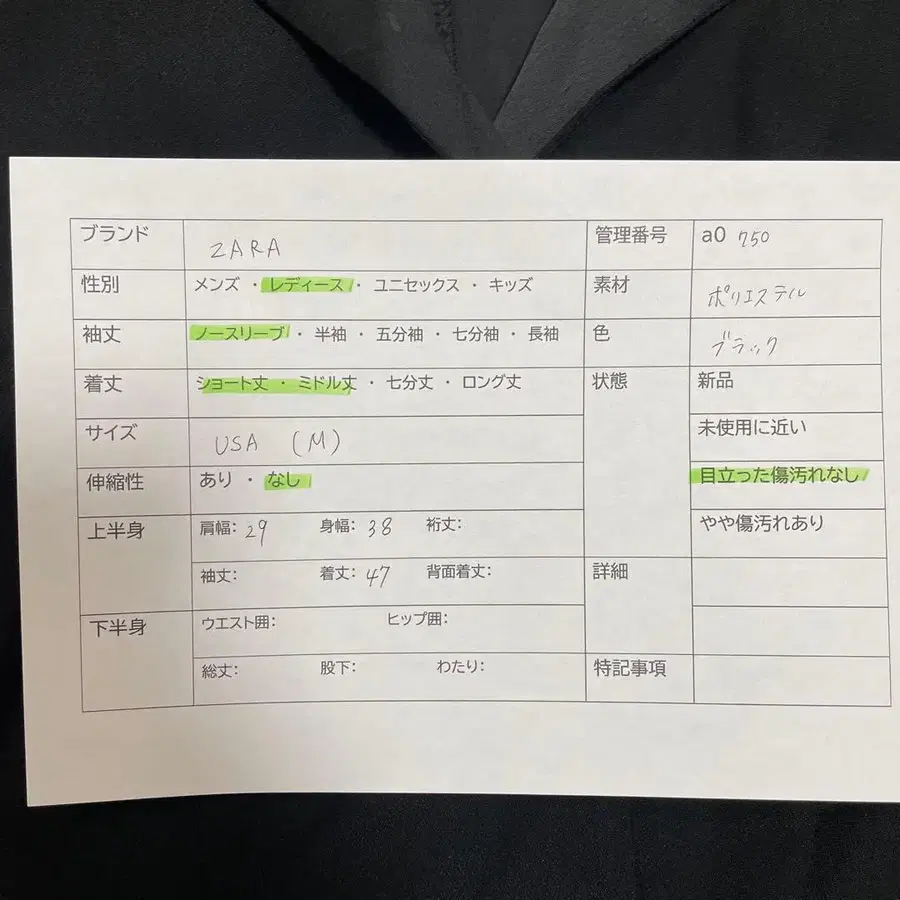 ブランド ZARA 管理番号 a0 750
性別 メンズ ・ レディース ・ ユニセックス ・ キッズ 素材 ポリエステル
袖丈 ノースリーブ ・ 半袖 ・ 五分袖 ・ 七分袖 ・ 長袖 色 ブラック
着丈 ショート丈 ・ ミドル丈 ・ 七分丈 ・ ロング丈 状態 新品
サイズ USA (M) 未使用に近い
伸縮性 あり ・ なし 目立った傷汚れなし
上半身 肩幅: 29 身幅: 38 裄丈: やや傷汚れあり
袖丈: 着丈: 47 背面着丈: 詳細
下半身 ウエスト囲: ヒップ囲:
総丈: 股下: わたり: 特記事項